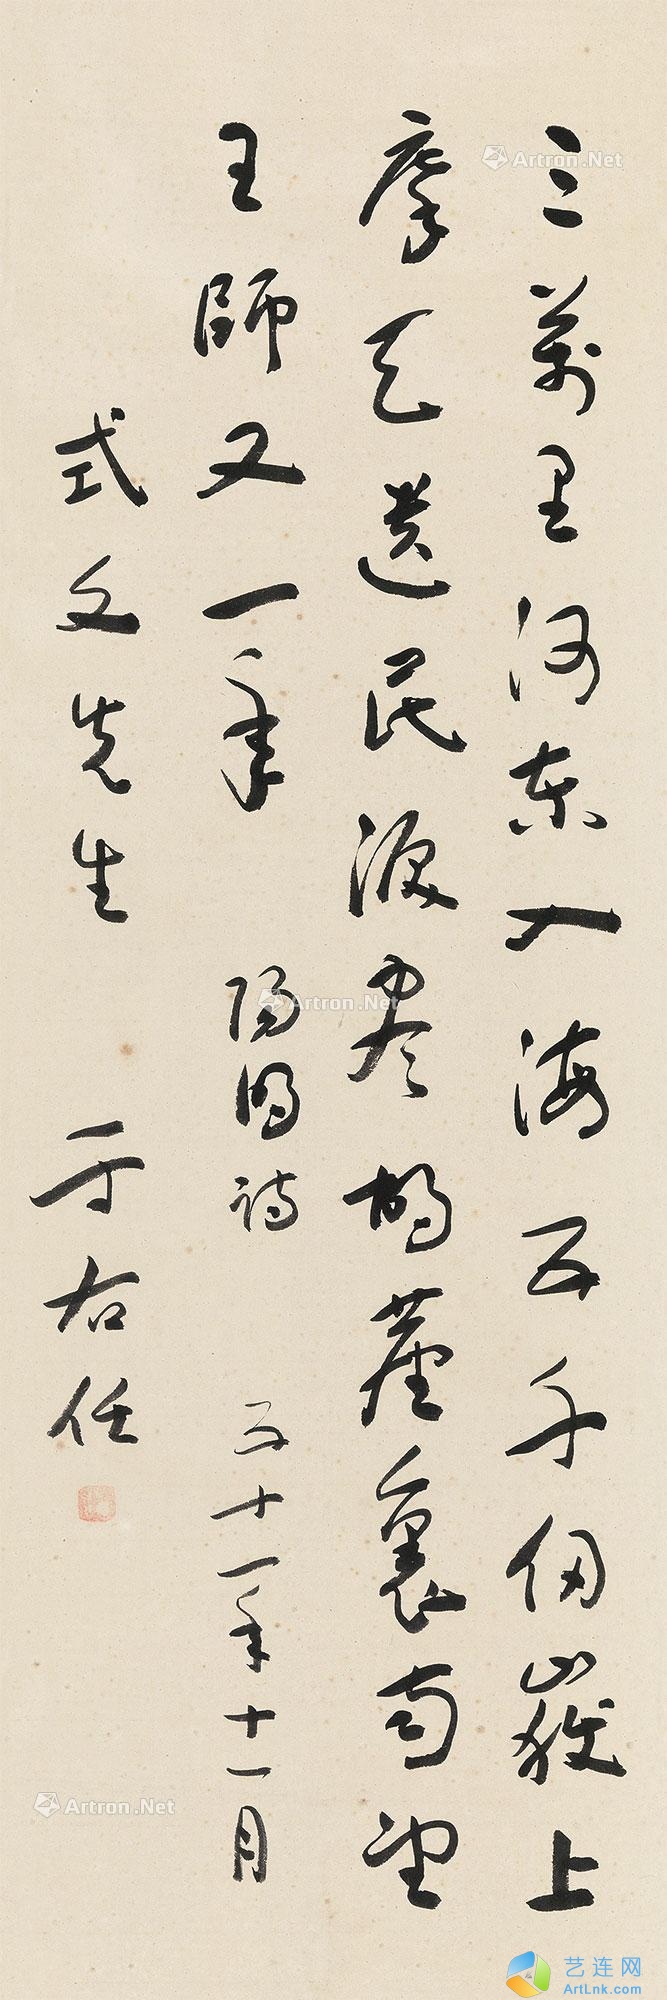 三萬里河東入海五千仞嶽上
摩天遺民淚盡胡塵裏南望
王師又一年 陽明詩 五十一年十一月
式文先生 于右任
Artron.Net
Artron.Net
Artron.Net
Artron.Net
Artron.Net
Artron.Net
艺连网
ArtLnk.com